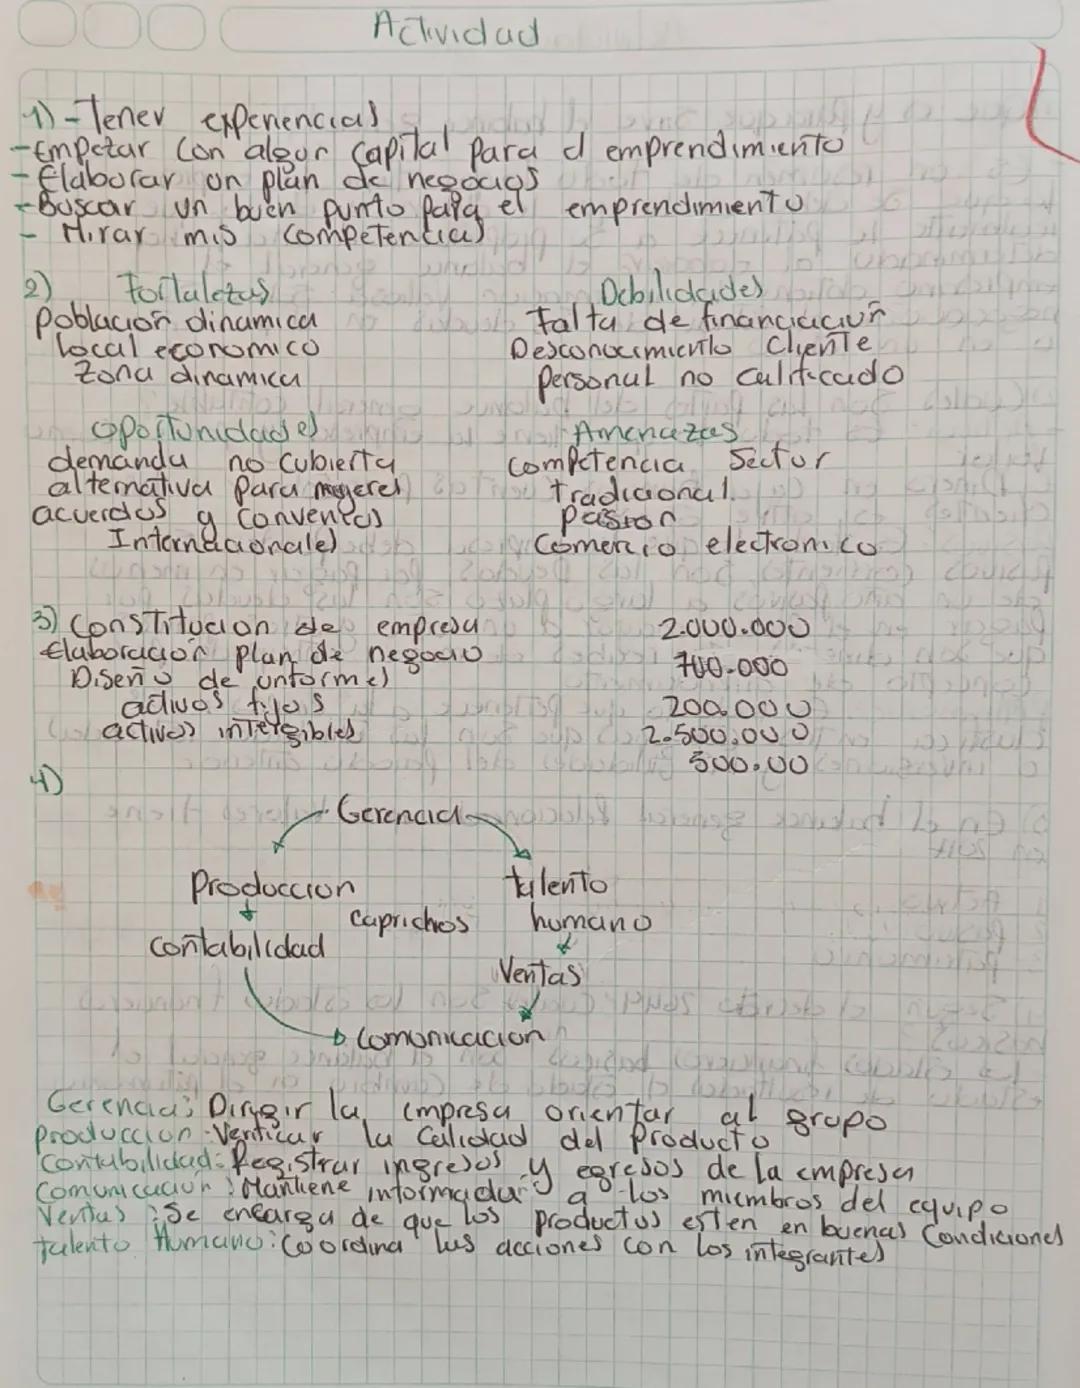 Actividad
1) - Tener experiencias
- Empezar con algun capital para el emprendimiento
- Elaborar un plan de negocios
- Buscar un buen punto para el emprendimiento
- Mirar mis competencias
2) Fortalezas Debilidades
Poblacion dinamica Falta de financiacion
local economico Desconocimiento Cliente
Zona dinamica Personal no calificado
Oportunidades Amenazas
demanda no cubierta competencia Sector
alternativa para mujeres tradicional.
acuerdos y conventos pasion
Internacionales Comercio electronico
3) Constitucion de empresa 2.000.000
Elaboracion plan de negocio 700.000
Diseño de unformes
activos fijos 200.000
activos intergibles 2.500.000
500.00
4)
Gerencia
Produccion talento
caprichos humano
contabilidad
Ventas
Comunicacion
Gerencia: Dirigir la empresa orientar al grupo
Produccion - Verificar la Calidad del Producto
Contabilidad: Registrar ingresos y egresos de la empresa
Comunicacion: Mantiene informada a los miembros del equipo
Ventas: Se encarga de que los productos esten en buenas Condiciones
Talento Humano: Coordina las acciones con los integrantes